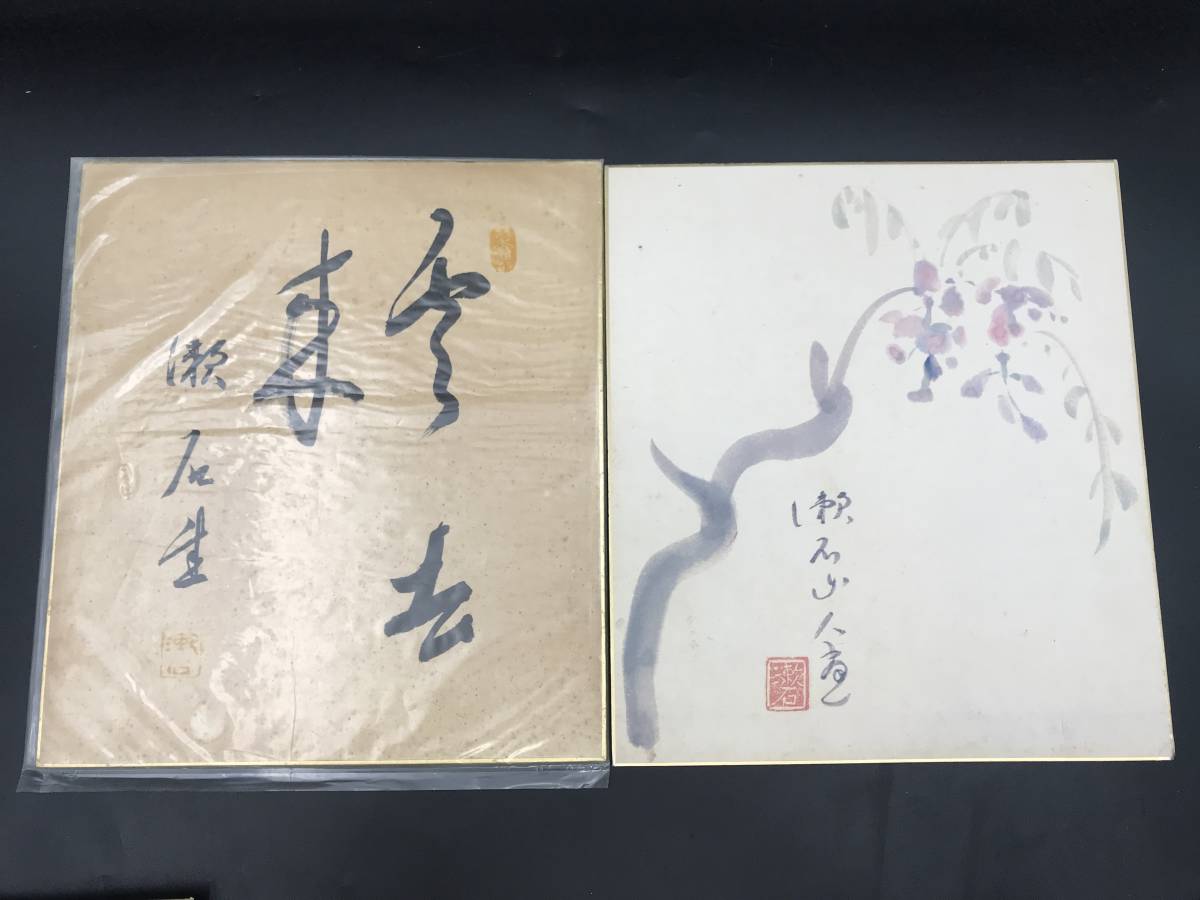 雲去
来
漱石生
漱石
漱石山人画
漱石